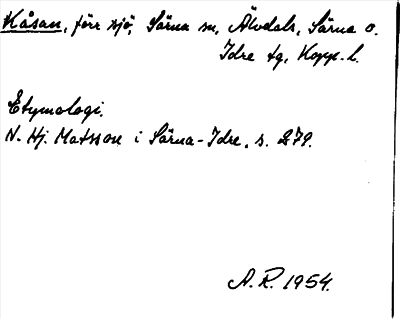 Kåsan, förr sjö, Särna sn, Älvdals, Särna o.
Idre tg, Kopp. l.
Etymologi.
N. Hj. Matsson i Särna-Idre, s. 279.
A. R. 1954.